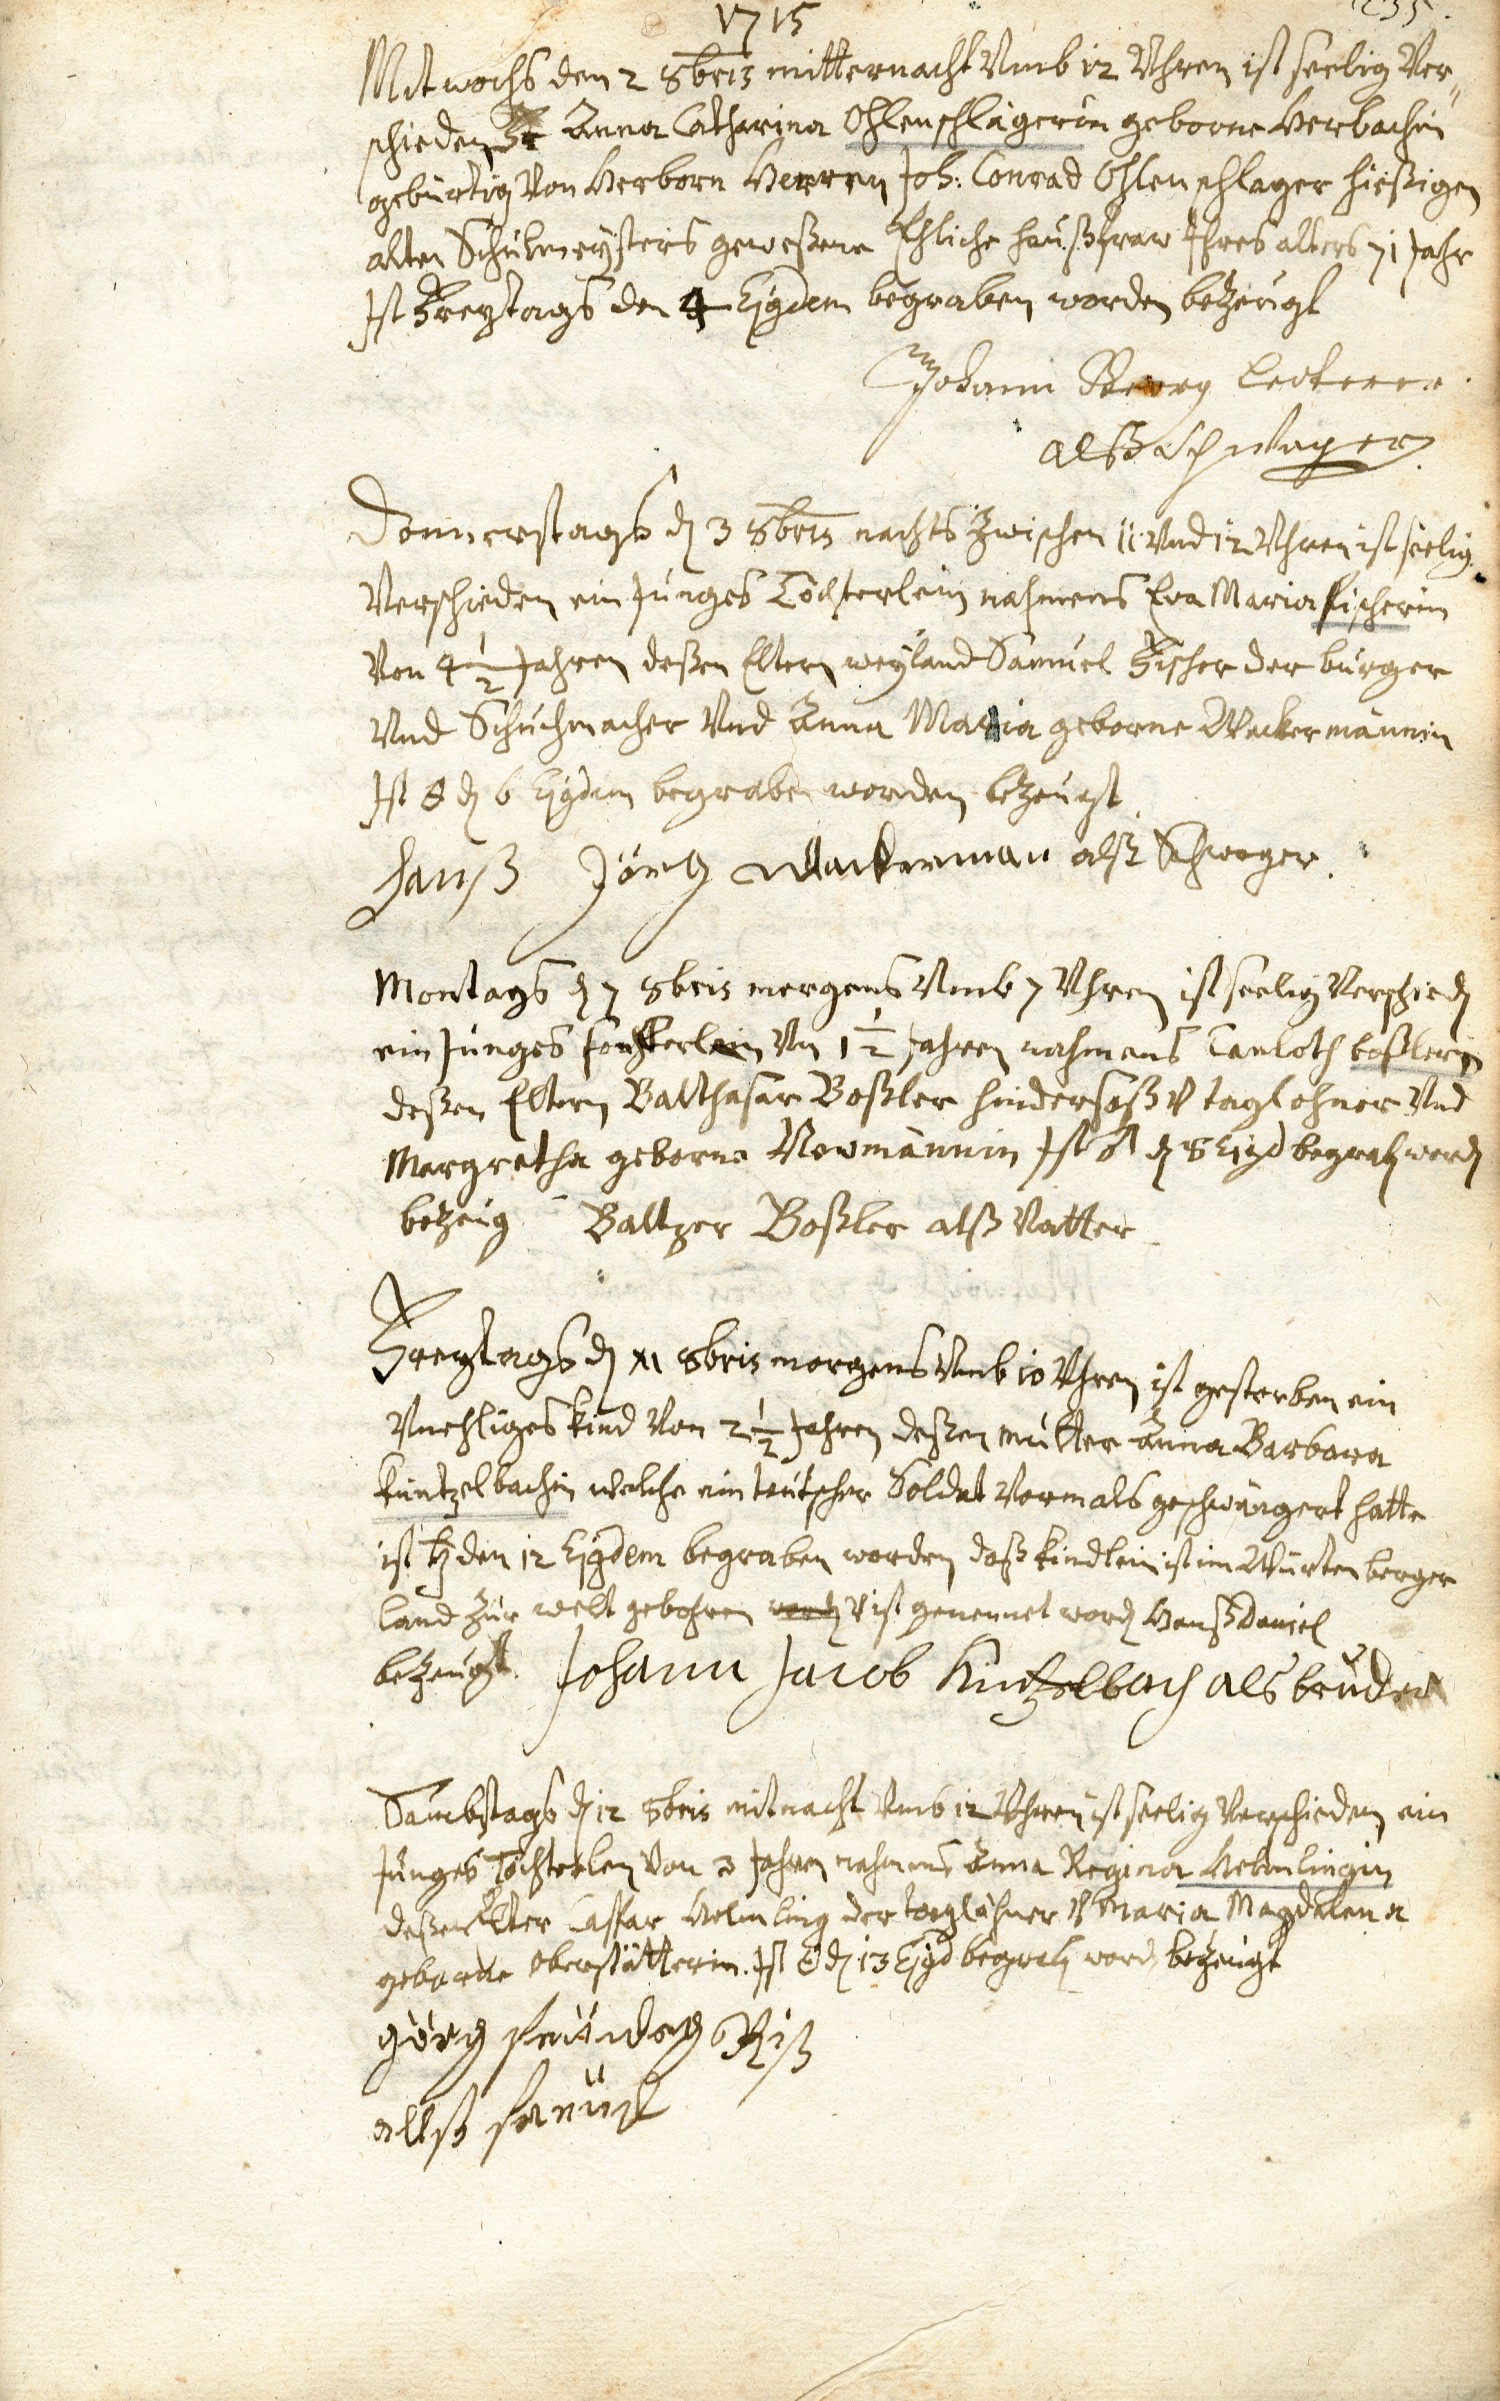 1715
235.
Mitwochs den 2 8bris mitternacht Vmb 12 Vhren ist seelig Ver„
schieden Anna Catharina Ohlenschlägerin geborne Verbachin
gebürtig Von Herborn Herren Joh: Conrad Ohlenschlager hießigen
alten Schulmeysters geweßene Ehliche haußfraw Ihres alters 71 Jahr
Ist Freytags den 4 Ejgdem begraben worden bezeugt
Johann Georg
alß Schwager
Donnerstags d 3 8bris nachts Zwischen 11 Vnd 12 Vhren ist seelig
Verschieden ein Junges Töchterlein nahmens Eva Maria Fischerin
Von 4 1/2 Jahren deßen Eltern weyland Samuel Fischer der burger
Vnd Schuhmacher Vnd Anna Maria geborne Wackermännin
Ist d 6 Ejgdem begraben worden bezeugt
Hanß Jörg Wackerman alß Schwager.
Montags d 7 8bris morgens Vmb 7 Vhren ist seelig Verschied
ein Junges Tochterlein Von 1 1/2 Jahren nahmens Carloth boßlerin
deßen Eltern Balthasar Boßler hindersaß V taglohner Vnd
Margretha geborne Newmännin Ist ♂ d 8 Ejgd begrab word
bezeug Baltzer Boßler alß Vatter
Freytags d 11 8bris morgens Vmb 10 Vhren ist gestorben ein
Vnehliges kind Von 2 1/2 Jahren deßen mutter Anna Barbara
Kuntzelbachin welche ein teutscher Soldat Vormals geschwängert hatte
ist ♄ den 12 Ejgdem begraben worden daß kindlein ist im Würtenberger
land zur welt gebohren V ist genennet word Hanß Daniel
bezeugt. Johann Jacob Kintzelbach als bruder
Sambstags d 12 8bris mitnacht Vmb 12 Vhren ist seelig Verschieden ein
Junges Töchterlen Von 3 Jahren nahmens Anna Regina Helmlingin
deßen Elter Caspar Helmling der taglöhner V Maria Magdalena
geborne Oberstätterin. Ist ☉ d 13 Ejgd begrab word bezeugt
görg
alß